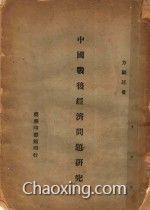 方顯廷著
中國戰後經濟問題研究
商務印書館印行
Chaoxing.com